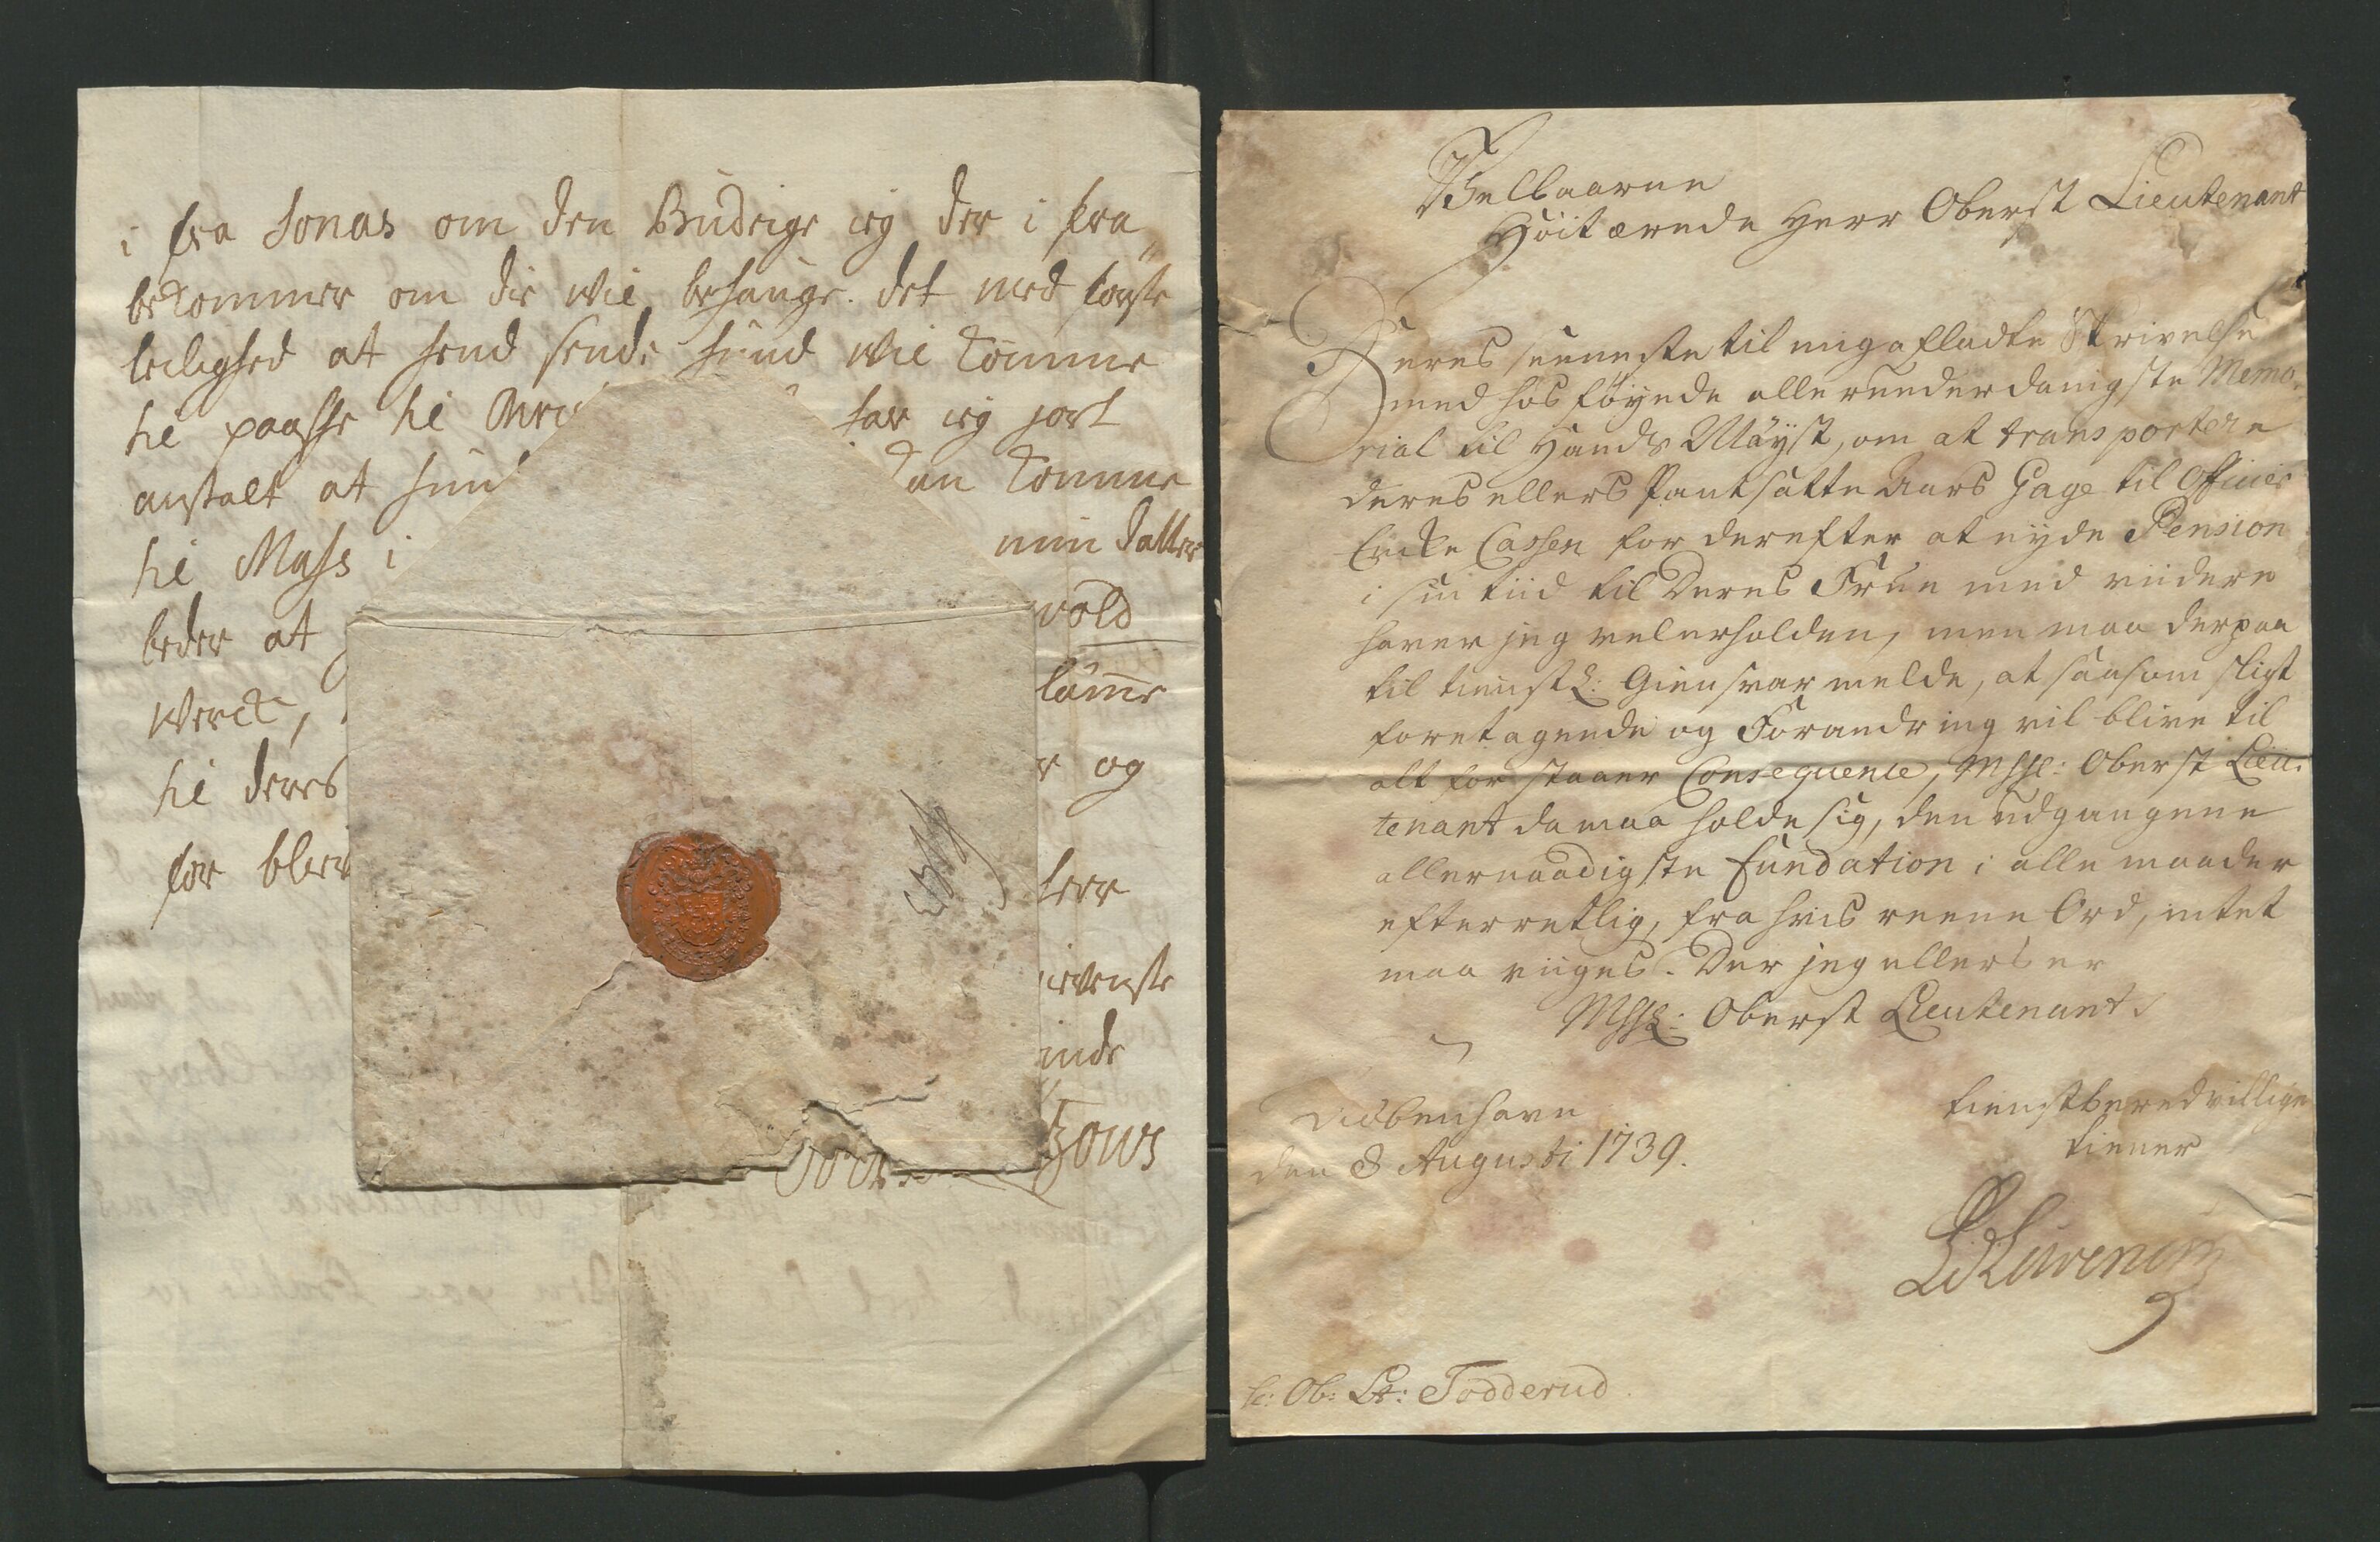 i fra Jonas om den Budeige ieg der i fra
bekommer om die wil behauge. det med første
leilighed at send sende hund wil komme
til paasse til har ieg jort
anstalt at kan komme
til Mass i min datter
beder at vold
Werck,
til deres og
for bliv
Welbaarne
Höitærede Herr Oberst Lieutenant
Deres seeneste til mig afladte Skrivelse
med hosföyede allerunderdanigste Memo-
rial til Hands Mayst, om at transportere
deres ellers Pantsatte Aars Gage til Officier
Encke Cassen for derefter at nyde Pension
i sin tiid til Deres Frue med viidere
haver jeg vel erholden, men maa derpaa
til tienstl: Giensvar melde, at saasom sligt
foretagende og Forandring vil blive til
alt for stoer Consequence, Mhhl: Oberst Lieu-
tenant da maa holde sig, den udgangene
allernaadigste fundation i alle maader
efterretlig, fra hvis reene Ord, intet
maa viiges. Der jeg ellers er
Mhhl: Oberst Lieutenants
Kiöbenhavn
den 8 Augusti 1739.
tienstberedvillige
tiener
Ob: Lt: Todderud